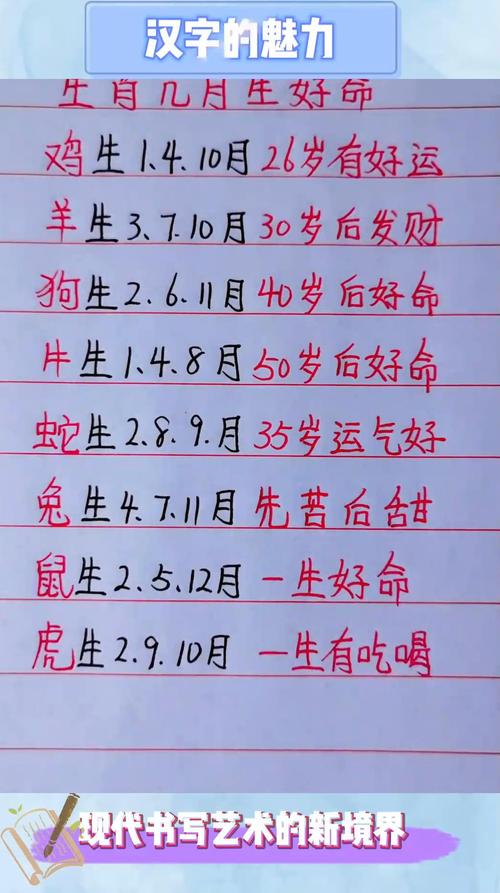 汉字的魅力
生肖几月生好命
鸡生1.4.10月 26岁有好运
羊生3、7.10月 30岁后发财
狗生2.6.11月 40岁后好命
牛生1.4.8月 50岁后好命
蛇生2.8.9.月 35岁运气好
兔生4.7.11月 先苦后甜
鼠生2.5.12月 一生好命
虎生2.9.10月 一生有吃喝
现代书写艺术的新境界